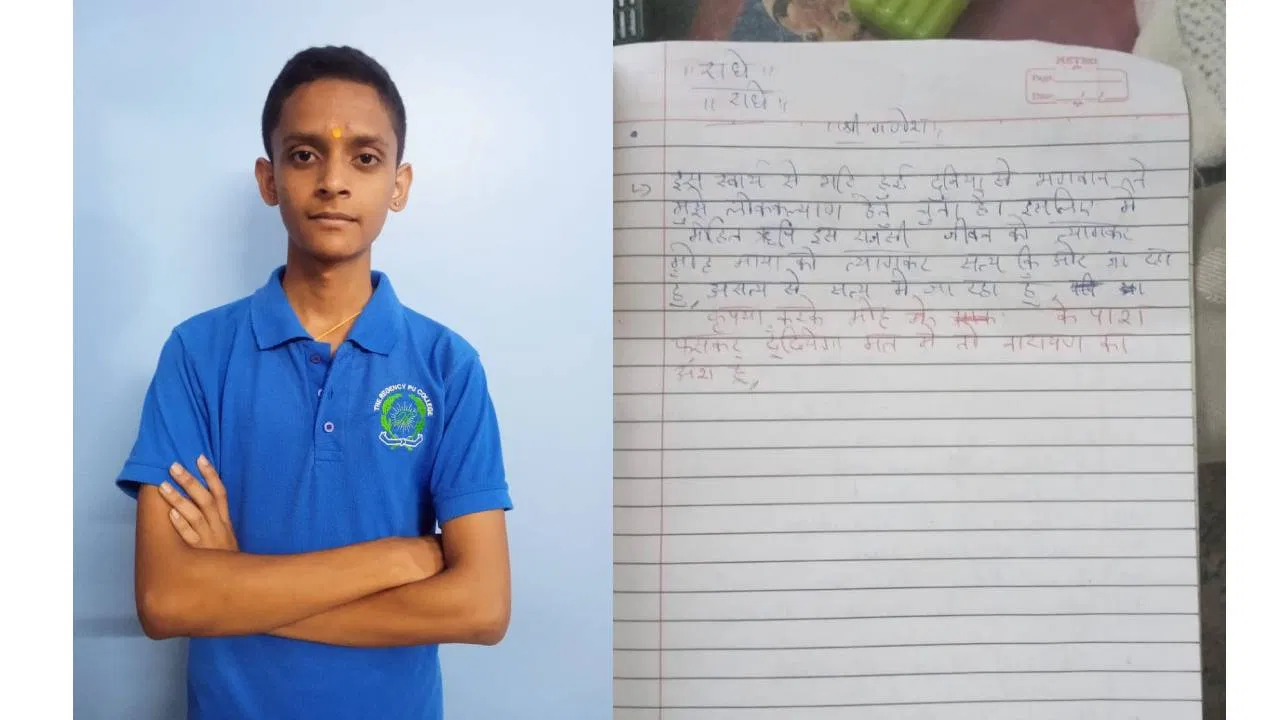 THE REGENCY PU COLLEGE
॥ राधे ॥
॥ राधे ॥
METRO
Page:
Date: / /
॥ श्री गणेश ॥
↳ इस स्वार्थ से भरि हुई दुनिया से भगवान ने
मुझे लोककल्याण हेतु चुना है। इसलिए मैं
मोहित ऋषि इस राजसी जीवन को त्यागकर
मोह माया को त्यागकर सत्य कि ओर जा रहा
हूं, असत्य से सत्य में जा रहा हूं
कृपया करके मोह के पाश
फसकर ढूंढियेगा मत मैं तो नारायण का
अंश हूं,